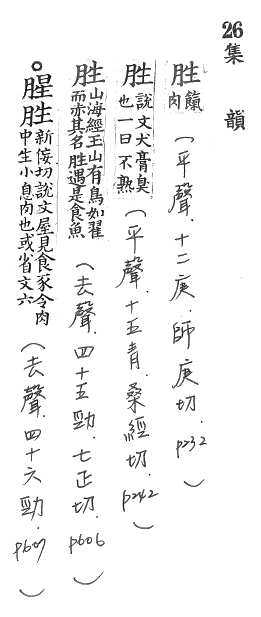 26 集韻
胜 肉 (平聲.十二庚.師庚切.p232)
胜 說文犬膏臭也一曰不熟 (平聲.十五青.桑經切.p242)
胜 山海經玉山有鳥如翟而赤其名胜遇是食魚 (去聲.四十五勁.七正切.p606)
。腥胜 新佞切說文星見食豕令肉中生小息肉也或省文六 (去聲.四十六勁.p607)